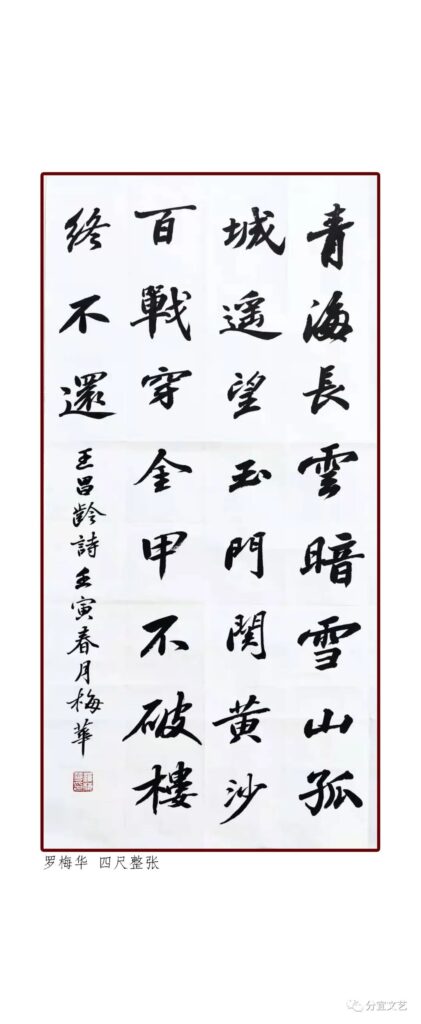 青海長雲暗雪山孤
城遥望玉門関黄沙
百戰穿金甲不破樓
終不還
王昌齡詩壬寅春月梅華
罗梅华 四尺整张
分宜文艺